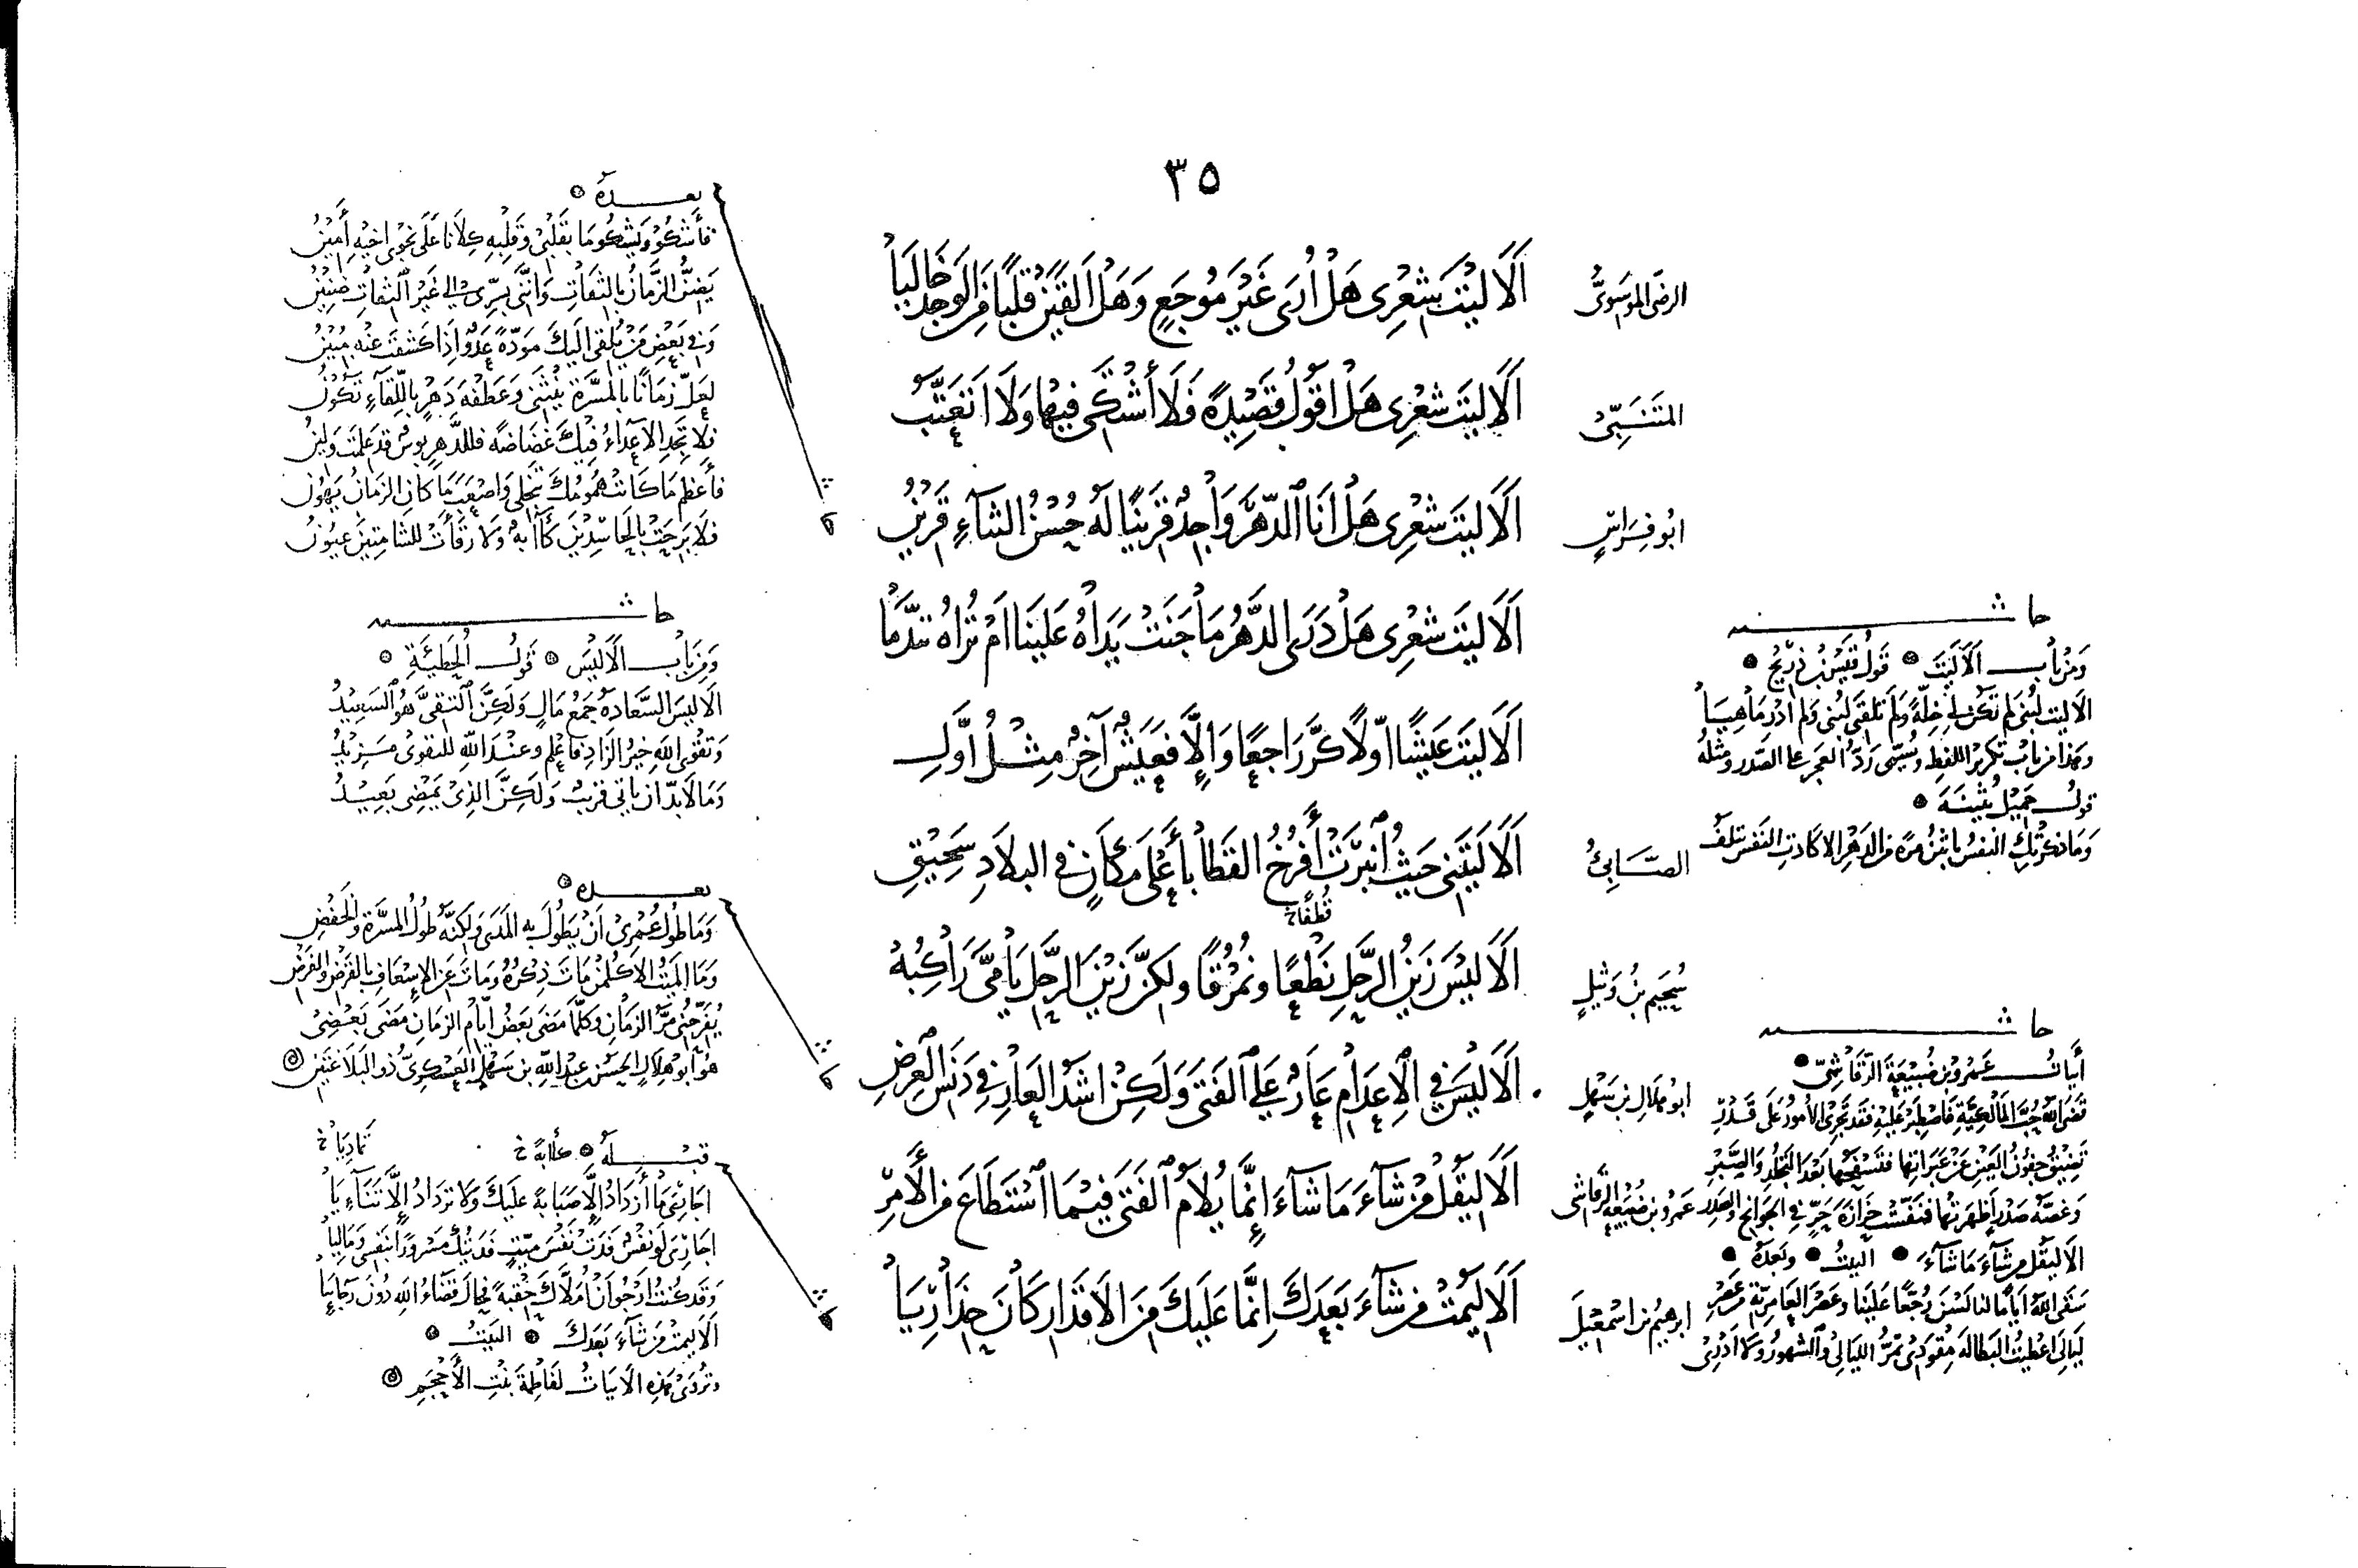 ٣٥
الرضى الموسوىُّ
أَلَا لَيْتَ شِعْرِى هَلْ أَرَى غَيْرَ مُوجَعٍ وَهَلْ أَلقَيَنْ قَلْبًا مِنَ الوَجدِ خَاليَا
المتَنَبِّى
أَلَا لَيتَ شِعْرِى هَلْ اقُولُ قَصِيْدَةً فَلَا أَشْتَكِى فِيهَا وَلَا اتَعَتَّبُ
ابُو فِرَاسٍ
أَلَا لَيتَ شعْرِى هَلْ أَنَا الدَّهْرَ وَاجِدٌ قَرِيْنًا لَهُ حُسْنُ الثنآءِ قَرِيْنُ
أَلَا لَيتَ شعْرِى هَلْ دَرَى الدَّهْرُ مَا جَنَتْ يَدَاهُ عَلَيْنَا امْ تُرَاهُ تندَّمَا
أَلَا لَيتَ عَيْشًا اوّلًا كَرَّ رَاجِعًا وَإلَّا فعَيْشٌ آخِرٌ مِثْلُ أوَّلِ
الصَّابِئُ
أَلَا لَيْتَنِى حَيثُ انبَرَتْ أَفرُخُ القَطَا بأَعْلَى مَكَانٍ فى البلَادِ سَحِيْقِ
سُحَيم بنُ وَثيلٍ
أَلَا لَيْسَ زَينُ الرَّحْلِ نَطْعًا ونُمْرُقًا ولكنَّ زَيْنَ الرَّحْلِ يَا مَىَّ رَاكِبُهْ
قُطُفًا خ
ابو هلالِ بن سَهْلٍ
أَلَا لَيْسَ فِي الِاعْدَامِ عَارٌ عَلَى الفَتَى وَلَكِنْ اشَدُّ العَارِ فِي دَنَسِ العِرْضِ
عمرو بن ضُبَيْعَه الرقَاشى
أَلَا ليَقُلْ مَنْ شآءَ مَا شآءَ إنَّمَا يُلَامُ الفَتَى فِيْمَا اسْتَطَاعَ منَ الأَمْرِ
ابرهيمُ بن اسْمعِيلَ
أَلَا لِيَمُتْ مَن شَآءَ بَعدَكَ إنَّمَا عَلَيكَ مِنَ الاقدَارِ كَانَ حِذَارِيَا
حاشـيه
وَمنْ بابِ أَلَا لَيْتَ قَولُ قَيْسِ بن ذَرِيْحٍ
الَا ليت لُبْنَى لم تكُنْ لي خِلَّةً وَلَم تلقَنى لبنى وَلَم ادْرِ مَا هِيَا
وهذا من بابِ تكرير اللفظ ويُسَمَّى رَدُّ العجز على الصّدر ومثلُهُ
قول جَمِيْلِ بُثَيْنَةَ
وَمَا ذكَرَتْكِ النفسُ يا بثنُ مرَّةً من الدهرِ الا كادتِ النَفسُ تَتلفُ
حاشـيه
أَبياتُ عَمْرِو بن ضُبَيْعَةَ الرَّقَاشِىِّ
قضى اللهُ حُبَّ المالكيَّةِ فاصْطَبرْ عَليهِ فقَد تَجرِى الأمُورُ عَلَى قَدْرِ
تَضِيْقُ جفُونُ العَينِ عَنْ عَبَرَاتِهَا فتَسْفَحُهَا بَعْدَ التجَلُّدِ وَالصَّبْرِ
وَغصَّة صَدْرٍ أظهرتهَا فنَفّسَتْ حَزَازَةَ حَرٍّ في الجَوَانحِ وَالصَدْرِ
الا ليقُل مَن شآءَ مَا شآءَ البيتُ وَبعدَهُ
سَقى اللهُ ايّامًا لنا لسْنَ رُجّعًا عَلَينَا وعَصْرَ العَامِريّة منْ عَصْرِ
لَيَالِىَ اعطيتُ البَطالَه مِقوَدِى تمُرُّ الليَالى وَالشهُورُ وَلا ادْرِى
بعـده
فأشكُو وَيَشكُو مَا بقَلبِى وَقَلبِهِ كِلَانَا عَلَى نَجوَى اخيهِ أَمِيْنُ
يَضنُّ الزمَانُ بالثقَاتِ وَانَّنى بِسرِّى الى غَيْرِ الثقاتِ ضَنِيْنُ
وَفى بَعْضِ مَنْ يُلقى اليكَ مَوَدّةً عَدُوٌّ اذَا كشفتَ عَنْهُ مُبِيْنُ
لعَلّ زمَانًا بالمَسَرَّةِ يَنْثَنِى وَعَطفة دَهْرٍ باللّقَاءِ تكُوْنُ
فلَا تجدِ الاعدَاءُ فِيْكَ غَضَاضَةً فللدَّهرِ بُوسٌ قد عَلمتَ ولِينُ
فأَعظم مَا كانتْ هُمُومُكَ تنجَلى وَاصْعَبَ مَا كانَ الزمَانُ يَهُونُ
فلَا بَرِحَتْ بالحَاسِدِيْنَ كَآبَةٌ وَلا رقَأَتْ للشّامتِيْنَ عيُونُ
حاشـيه
وَمِنْ بابِ أَلَا لَيْسَ قولُ الحُطَيْئَةِ
الَا لَيسَ السَّعَادَةُ جَمْعُ مَالٍ وَلَكِنَّ التقىَّ هُوَ السَعِيْدُ
وَتقْوى اللهِ خيرُ الزَادِ فاعْلم وعنْدَ اللهِ للتقوى مَزِيْدُ
وَمَا لَا بدَّ ان يَاتى قريبٌ وَلكنَّ الذِى يَمْضِى بَعِيْدُ
بعـده
وَمَا طولُ عُمْرِى انْ يَطُولَ بِه المَدَى وَلكِنَّهُ طُولُ المسَرَّةِ والخفْضِ
وَمَا المَيتُ الا كُلّ مَن مَاتَ ذِكْرُهُ وَمَاتَ عن الإسعَافِ بالقرضِ والفرضِ
يُفَرِّحُنِى مَرُّ الزمَانِ وَكلّمَا مَضَى بَعْضُ ايّامِ الزمَانِ مَضَى بَعْضِىْ
هُوَ ابُو هِلَالٍ الحسَنُ بن عبدِ اللهِ بن سَهْلٍ العَسْكرِىُّ ذو البَلَاغَتَيْنِ
قبـله كآبةً خ تمادِيَا خ
اجَارِىَ مَا أَزدَادُ إلَّا صَبَابَةً عَلَيكَ وَلَا تزدَادُ إلَّا تنَائيَا
اجَارِىَ لَو نفْسٌ فَدَتْ نَفْسَ ميّتٍ فَدَيْتُكَ مَسْرُورًا بنَفسِى وَمَالِيَا
وَقد كنتُ ارْجُو انْ أُمَلَّاكَ حِقبَةً فحَالَ قضَاءُ اللهِ دُونَ رَجَائيَا
أَلَا ليمتْ مَنْ شآءَ بَعْدَكَ البَيْتُ
وَتُروَى هَذِه الابيَاتُ لفَاطِمَةَ بنْتِ الأَحْجَمِ